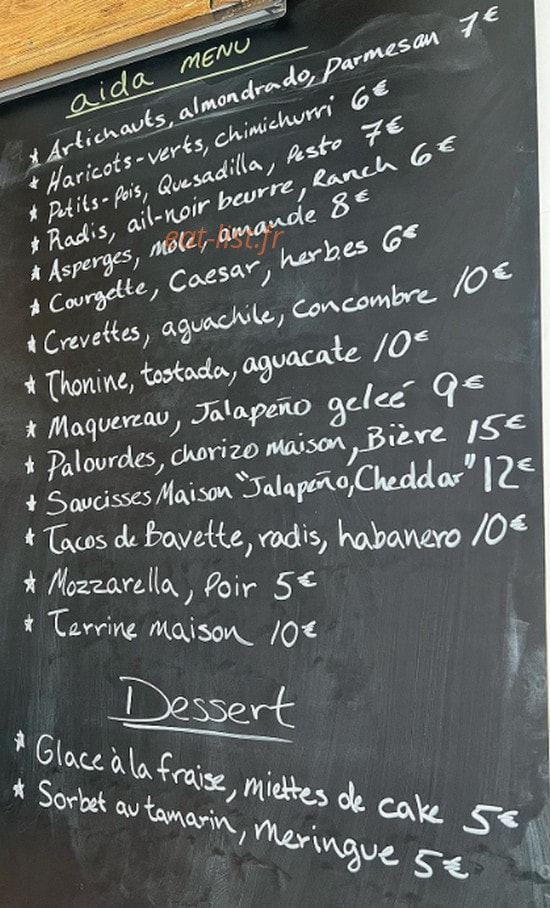 aida MENU
* Artichauts, almondrado, parmesan 7€
* Haricots-verts, chimichurri 6€
* Petits-pois, Quesadilla, Pesto 7€
* Radis, ail-noir beurre, Ranch 6€
* Asperges, mole, amande 8€
* Courgette, Caesar, herbes 6€
* Crevettes, aguachile, concombre 10€
* Thonine, tostada, aguacate 10€
* Maquereau, Jalapeño geleé 9€
* Palourdes, chorizo maison, Bière 15€
* Saucisses Maison "Jalapeño, Cheddar" 12€
* Tacos de Bavette, radis, habanero 10€
* Mozzarella, Poir 5€
* Terrine maison 10€
Dessert
* Glace à la fraise, miettes de cake 5€
* Sorbet au tamarin, meringue 5€
eat-list.fr